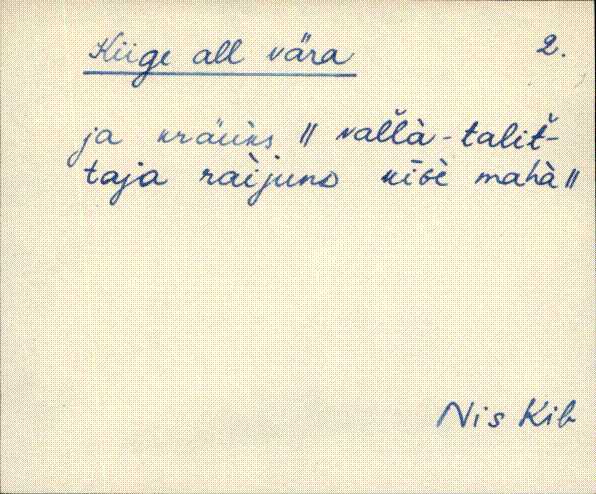 Kiige all vära 2.
ja kräùks || vallà-talit̆-
taja raìjuno kīɢè mahà ||
Nis Kib